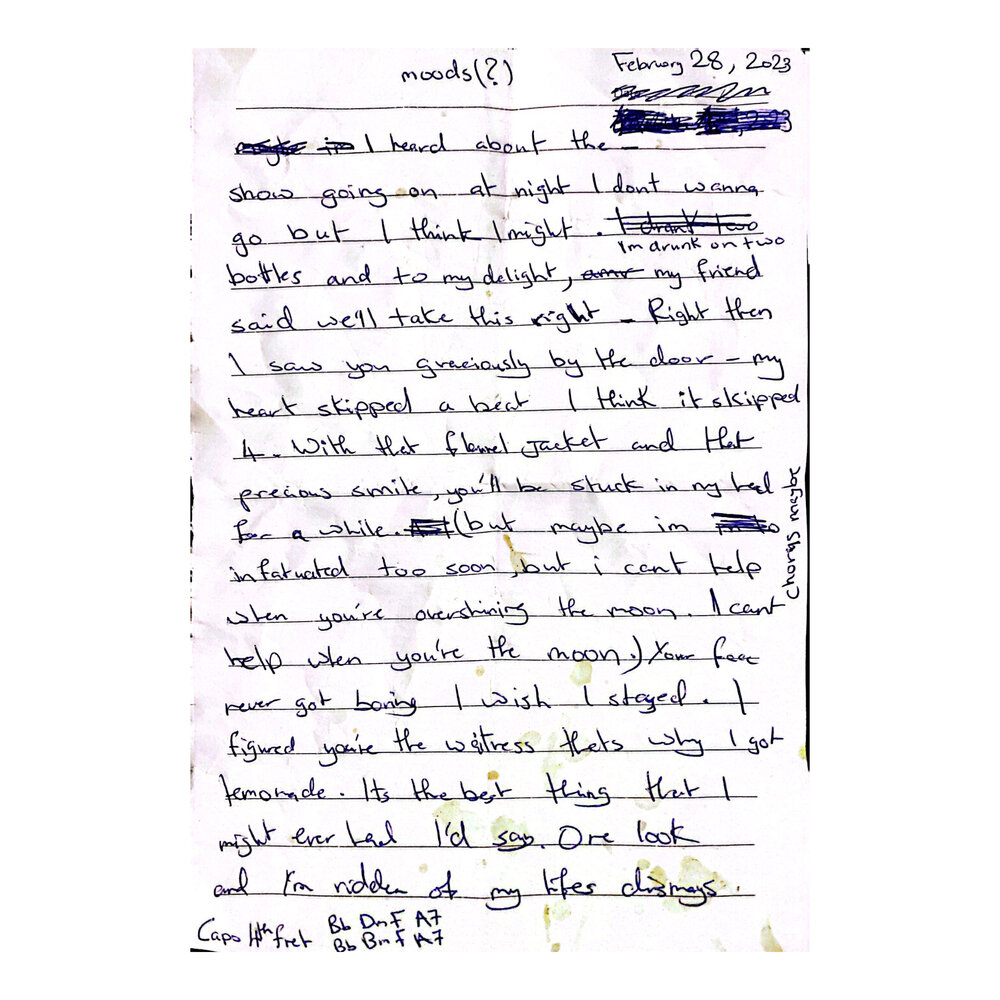 moods(?)
February 28, 2023
I heard about the –
show going on at night I dont wanna
go but I think I might. I drank two
I'm drunk on two
bottles and to my delight, my friend
said we'll take this right – Right then
I saw you graciously by the door – my
heart skipped a beat I think it skipped
4 – With that flannel jacket and that
precious smile, you'll be stuck in my head
for a while. (but maybe im
infatuated too soon, but i cant help
when you're overshining the moon. I cant
help when you're the moon.) Your face
never got boring I wish I stayed. I
figured you're the waitress thats why I got
lemonade. Its the best thing that I
might ever had I'd say. One look
and I'm ridden of my lifes dismays.
chorus maybe
Capo 4th fret Bb Dm F A7
Bb Bm F A7